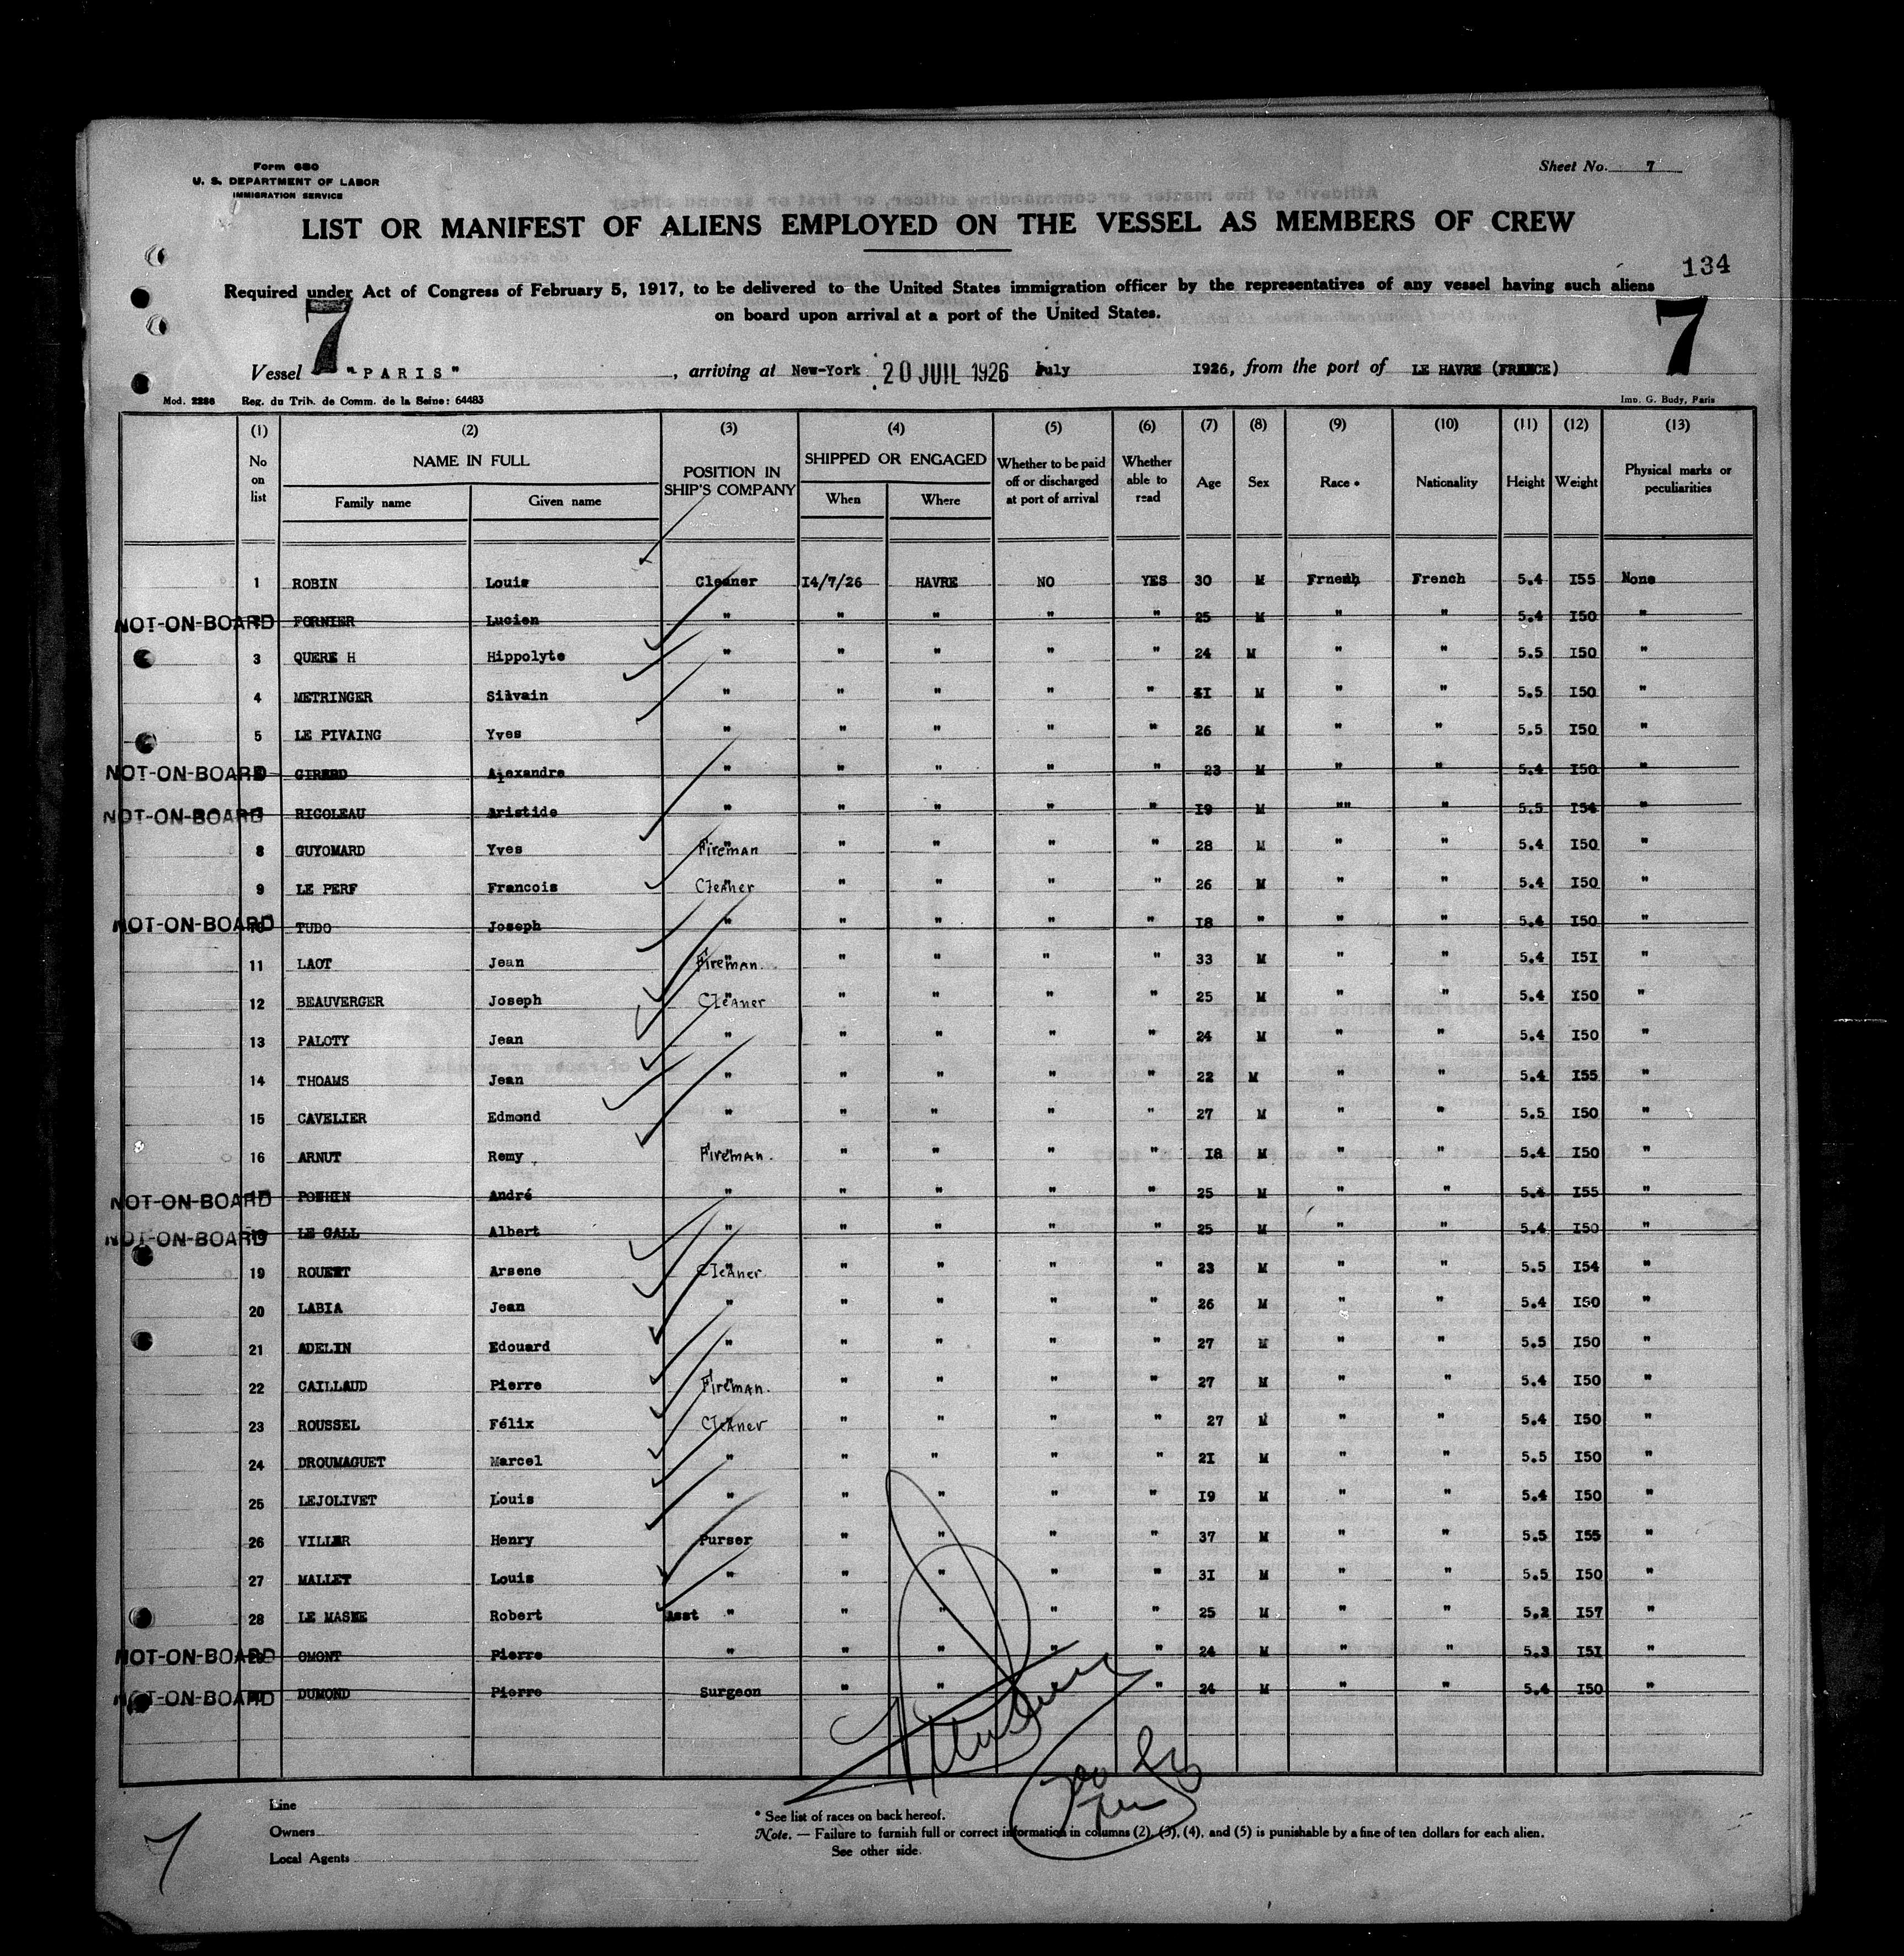 Form 680
U. S. DEPARTMENT OF LABOR
IMMIGRATION SERVICE
Sheet No. 7
LIST OR MANIFEST OF ALIENS EMPLOYED ON THE VESSEL AS MEMBERS OF CREW
134
Required under Act of Congress of February 5, 1917, to be delivered to the United States immigration officer by the representatives of any vessel having such aliens
on board upon arrival at a port of the United States.
7 7
Vessel "PARIS" , arriving at New-York 20 JUIL 1926 July 1926, from the port of LE HAVRE (FRENCE)
Mod. 2286 Reg. du Trib. de Comm. de la Seine: 64483 Imp. G. Budy, Paris
(1) (2) (3) (4) (5) (6) (7) (8) (9) (10) (11) (12) (13)
No on list NAME IN FULL Family name Given name POSITION IN SHIP'S COMPANY SHIPPED OR ENGAGED When Where Whether to be paid off or discharged at port of arrival Whether able to read Age Sex Race * Nationality Height Weight Physical marks or peculiarities
1 ROBIN Louis Cleaner 14/7/26 HAVRE NO YES 30 M Frnech French 5.4 I55 None
NOT-ON-BOARD FORNIER Lucien " " " " " 25 M " " 5.4 I50 "
3 QUERE H Hippolyte " " " " " 24 M " " 5.5 I50 "
4 METRINGER Silvain " " " " " M " " 5.5 I50 "
5 LE PIVAING Yves " " " " " 26 M " " 5.5 I50 "
NOT-ON-BOARD GIRARD Alexandre " " " " " 23 M " " 5.4 I50 "
NOT-ON-BOARD RIGOLEAU Aristide " " " " " I9 M "" " 5.5 I54 "
8 GUYOMARD Yves Fireman " " " " 28 M " " 5.4 I50 "
9 LE PERF Francois Cleaner " " " " 26 M " " 5.4 I50 "
NOT-ON-BOARD 10 TUDO Joseph " " " " " I8 " " " 5.4 I50 "
11 LAOT Jean Fireman. " " " " 33 M " " 5.4 I5I "
12 BEAUVERGER Joseph Cleaner " " " " 25 M " " 5.4 I50 "
13 PALOTY Jean " " " " " 24 M " " 5.4 I50 "
14 THOAMS Jean " " " " " 22 M " " 5.4 I55 "
15 CAVELIER Edmond " " " " " 27 M " " 5.5 I50 "
16 ARNUT Remy Fireman. " " " " I8 M " " 5.4 I50 "
NOT-ON-BOARD 17 André " " " " " 25 M " " 5.4 I55 "
NOT-ON-BOARD LE GALL Albert " " " " " 25 M " " 5.4 I50 "
19 Arsene Cleaner " " " " 23 M " " 5.5 I54 "
20 LABIA Jean " " " " " 26 M " " 5.4 I50 "
21 ADELIN Edouard " " " " " 27 M " " 5.5 I50 "
22 CAILLAUD Pierre Fireman. " " " " 27 M " " 5.4 I50 "
23 ROUSSEL Félix Cleaner " " " " 27 M " " 5.4 I50 "
24 DROUMAGUET Marcel " " " " " 2I M " " 5.5 I50 "
25 LEJOLIVET Louis " " " " " I9 M " " 5.4 I50 "
26 VILLER Henry Purser " " " " 37 M " " 5.5 I55 "
27 MALLET Louis " " " " " 3I M " " 5.5 I50 "
28 LE MASNE Robert Asst " " " " " 25 M " " 5.2 I57 "
NOT-ON-BOARD 29 OMONT Pierre " " " " " 24 M " " 5.3 I5I "
NOT-ON-BOARD DUMOND Pierre Surgeon " " " 24 M " " 5.4 I50 "
Line
Owners
Local Agents
7
* See list of races on back hereof.
Note. — Failure to furnish full or correct information in columns (2), (3), (4), and (5) is punishable by a fine of ten dollars for each alien.
See other side.